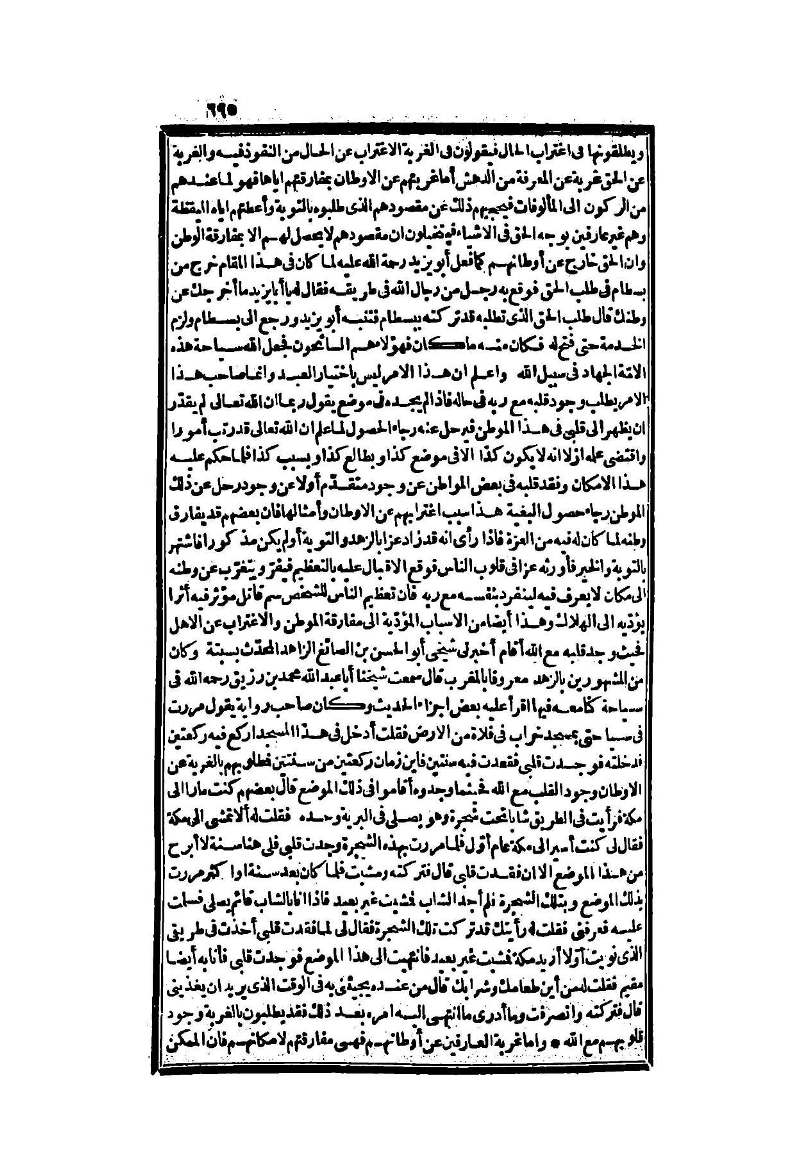 ٦٩٥
ويطلقونها فى اغتراب الحال فيقولون فى الغربة الاغتراب عن الحال من النفوذ فيه والغربة
عن الحق غربة عن المعرفة من الدهش أما غربتهم عن الاوطان بمفارقتهم اياها فهو لما عندهم
من الركون الى المألوفات فيحجبهم ذلك عن مقصودهم الذى طلبوه بالتوبة وأعطتهم اياه اليقظة
وهم غير عارفين بوجه الحق فى الاشياء فيتخيلون ان مقصودهم لا يحصل لهم الا بمفارقة الوطن
وان الحق خارج عن أوطانهم كما فعل أبو يزيد رحمة الله عليه لما كان فى هذا المقام خرج من
بسطام فى طلب الحق فوقع به رجل من رجال الله فى طريقه فقال له يا أبا يزيد ما أخرجك عن
وطنك قال طلب الحق الذى تطلبه قد تركته ببسطام فتنبه أبو يزيد ورجع الى بسطام ولزم
الخدمة حتى فتح له فكان منه ما كان فهؤلاء هم السائحون فجعل الله سياحة هذه
الامّة الجهاد فى سبيل الله واعلم ان هذا الامر ليس باختيار العبد وانما صاحب هذا
الامر يطلب وجود قلبه مع ربه فى حاله فاذا لم يجده فى موضع يقول ربما ان الله تعالى لم يقدّر
ان يظهر الى قلبى فى هذا الموطن فيرحل عنه رجاء الحصول لما علم ان الله تعالى قد رتب أمورا
واقتضى علمه أزلا انه لا يكون كذا الا فى موضع كذا وبطالع كذا وبسبب كذا فلما حكم عليه
هذا الامكان وفقد قلبه فى بعض المواطن عن وجود متقدّم أولا عن وجود رحل عن ذلك
الموطن رجاء حصول البغية هذا سبب اغترابهم عن الاوطان وأمثالها فان بعضهم قد يفارق
وطنه لما كان له فيه من العزة فاذا رأى انه قد زاد عزا بالزهد والتوبة أو لم يكن مذكورا فاشتهر
بالتوبة والخير فأورثه عزا فى قلوب الناس فوقع الاقبال عليه بالتعظيم فيفرّ ويتغرّب عن وطنه
الى مكان لا يعرف فيه لينفرد بنفسه مع ربه فان تعظيم الناس للشخص سم قاتل مؤثر فيه أثرا
يؤدّيه الى الهلاك وهذا أيضا من الاسباب المؤدّية الى مفارقة الموطن والاغتراب عن الاهل
فحيث وجد قلبه مع الله أقام أخبرنى شيخى أبو الحسن بن الصائغ الزاهد المحدّث بسبتة وكان
من المشهورين بالزهد معروفا بالمغرب قال سمعت شيخنا أبا عبد الله محمد بن رزيق رحمه الله فى
سياحة كنا معه فيها اقرأ عليه بعض اجزاء الحديث وكان صاحب رواية يقول مررت
فى سياحتى بمسجد خراب فى فلاة من الارض فقلت أدخل فى هذا المسجد اركع فيه ركعتين
فدخلته فوجدت قلبى فقعدت فيه سنتين فاين زمان ركعتين من سنتتن فطلوبهم بالغربة عن
الاوطان وجود القلب مع الله فحيثما وجدوه أقاموا فى ذلك الموضع قال بعضهم كنت مارا الى
مكة فرأيت فى الطريق شابا تحت شجرة وهو يصلى فى البرية وحده فقلت له ألا تمشى الى مكة
فقال لى كنت أسير الى مكة عام أوّل فلما مررت بهذه الشجرة وجدت قلبى فلى هنا سنة لا أبرح
من هذا الموضع الا ان فقدت قلبى قال فتركته ومشيت فلما كان بعد سنة او اكثر مررت
بذلك الموضع وبتلك الشجرة فلم أجد الشاب فمشيت غير بعيد فاذا انا بالشاب قائم يصلى فسلمت
عليه فعرفنى فقلت له رأيتك قد تركت تلك الشجرة فقال لى لما فقدت قلبى أخذت فى طريقى
الذى نويت أوّلا أريد مكة فمشيت غير بعيد فانتهيت الى هذا الموضع فوجدت قلبى فأنا به أيضا
مقيم فقلت له من أين طعامك وشرابك قال من عنده يجيئنى به فى الوقت الذى يريد ان يغذينى
قال فتركته وانصرفت وما أدرى ما انتهى اليه امره بعد ذلك فقد يطلبون بالغربة وجود
قلوبهم مع الله * واما غربة العارفين عن أوطانهم فهى مفارقتهم لامكانهم فان الممكن